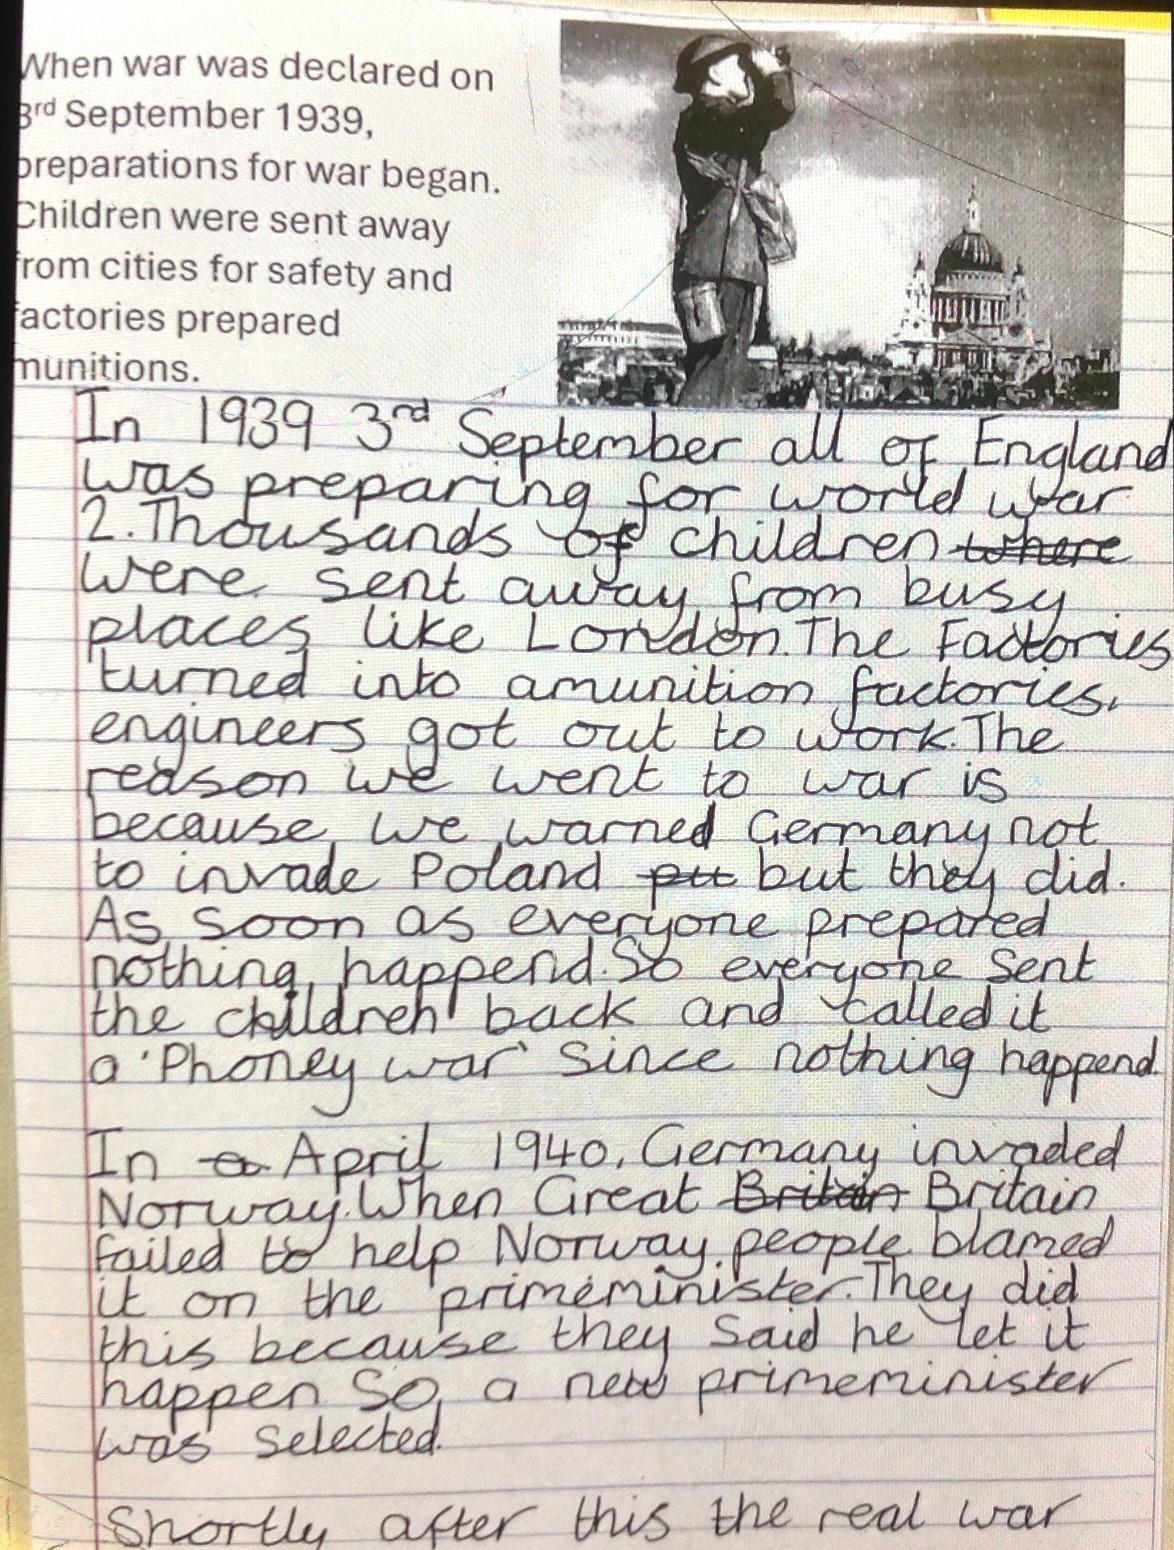 When war was declared on
3rd September 1939,
preparations for war began.
Children were sent away
from cities for safety and
factories prepared
munitions.
In 1939 3rd September all of England
was preparing for world war
2. Thousands of children where
were sent away from busy
places like London. The Factories
turned into amunition factories,
engineers got out to work. The
reason we went to war is
because we warned Germany not
to invade Poland but they did.
As soon as everyone prepared
nothing happend. So everyone sent
the children back and called it
a 'Phoney war' since nothing happend.
In a April 1940, Germany invaded
Norway. When Great Britain Britain
failed to help Norway, people blamed
it on the primeminister. They did
this because they said he let it
happen So, a new primeminister
was selected.
Shortly after this the real war